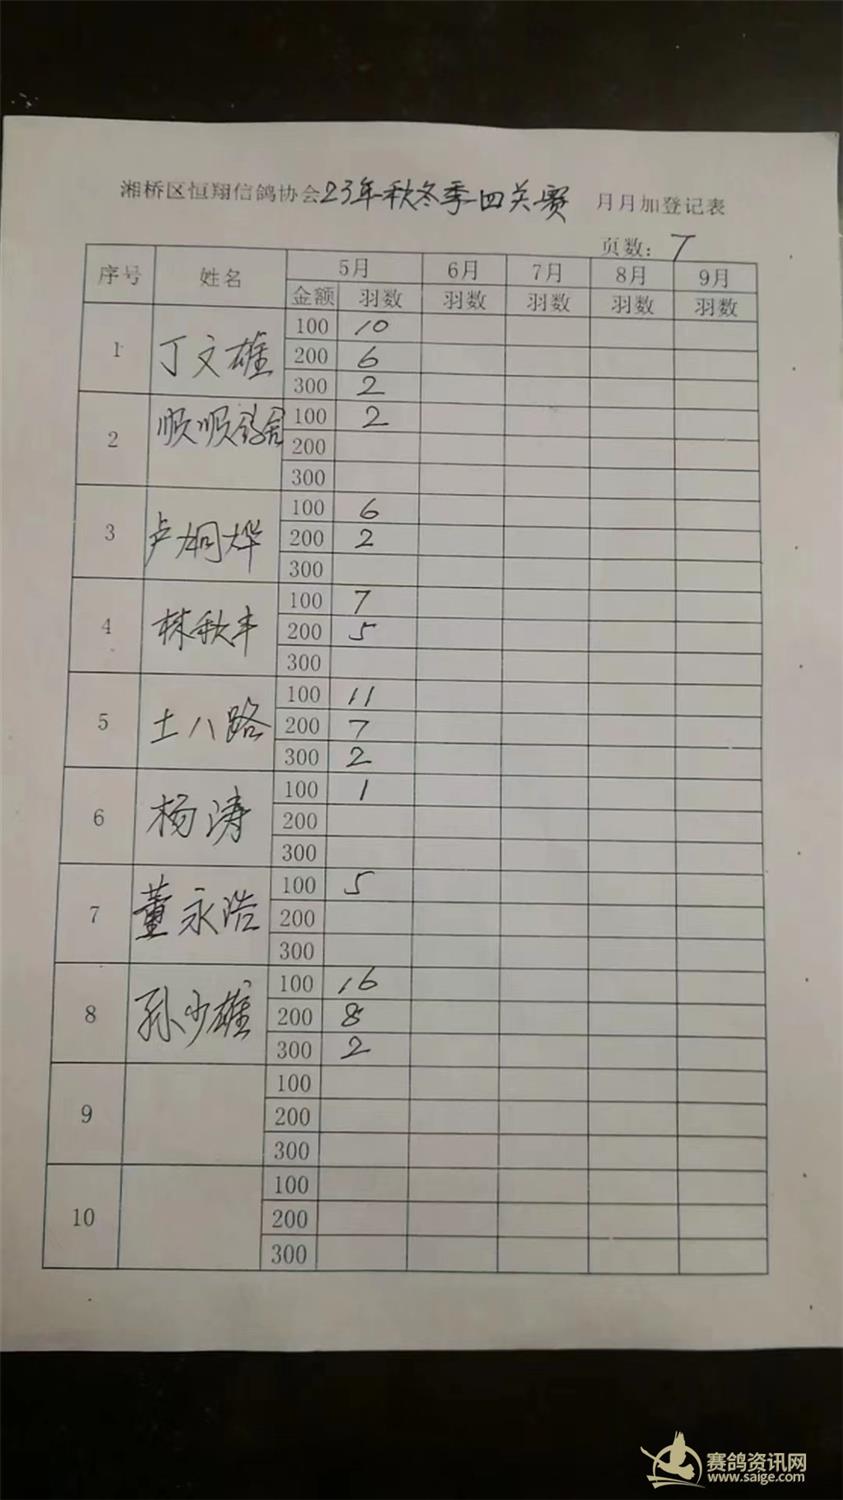 湘桥区恒翔信鸽协会23年秋冬季四关赛 月月加登记表
页数：7
序号 姓名 5月 6月 7月 8月 9月
金额 羽数 羽数 羽数 羽数 羽数
100 10
1 丁文雄 200 6
300 2
100 2
2 顺顺鸽舍 200
300
100 6
3 卢桐烨 200 2
300
100 7
4 林秋丰 200 5
300
100 11
5 土八路 200 7
300 2
100 1
6 杨涛 200
300
100 5
7 董永浩 200
300
100 16
8 孙少雄 200 8
300 2
100
9 200
300
100
10 200
300
赛鸽资讯网
www.saige.com